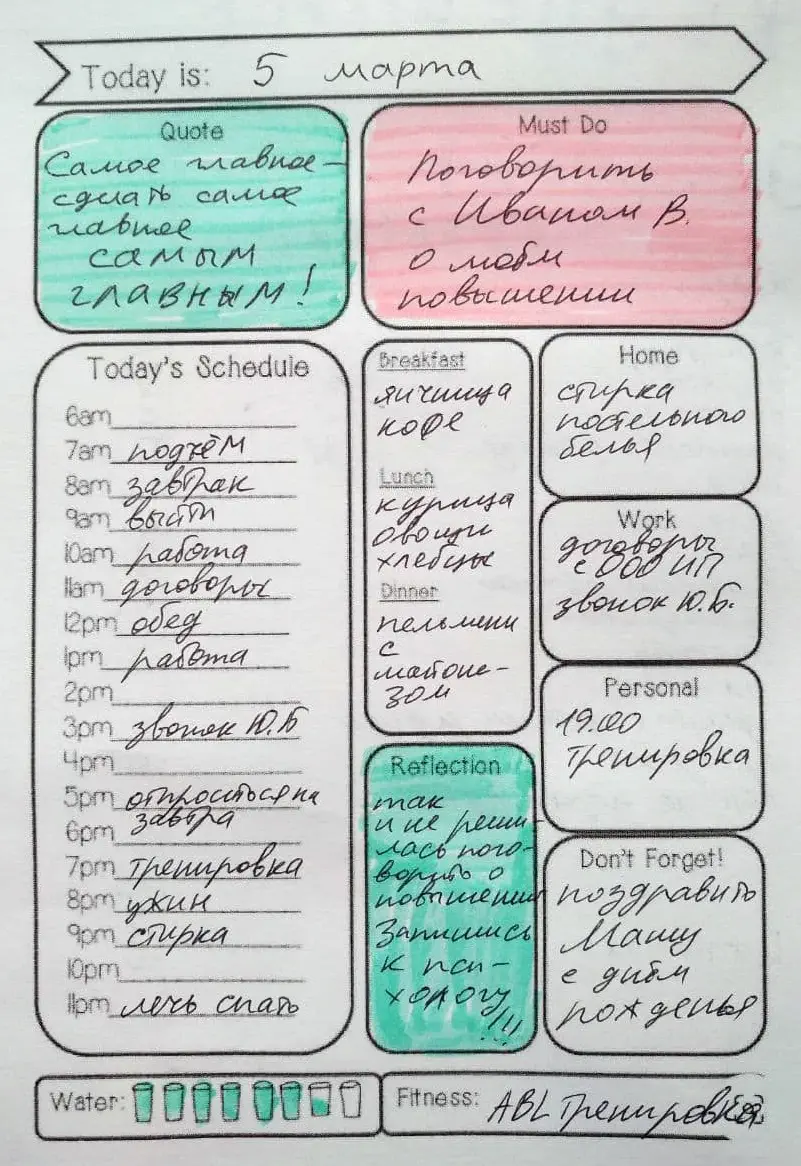 Today is: 5 марта
Quote
Самое главное –
сделать самое
главное
самым
главным!
Must Do
Поговорить
с Иваном В.
о моём
повышении
Today's Schedule
6am
7am подъём
8am завтрак
9am выйти
10am работа
11am договоры
12pm обед
1pm работа
2pm
3pm звонок Ю.Б
4pm
5pm отпроситься на
завтра
6pm
7pm тренировка
8pm ужин
9pm стирка
10pm
11pm лечь спать
Breakfast
яичница
кофе
Lunch
курица
овощи
хлебцы
Dinner
пельмени
с
майоне-
зом
Home
стирка
постельного
белья
Work
договоры
с ООО ИП
звонок Ю.Б.
Personal
19.00
тренировка
Reflection
так
и не реши-
лась пого-
ворить о
повышении
Запишись
к пси-
хологу
!!!
Don't Forget!
поздравить
Машу
с днём
рожденья
Water:
Fitness: ABL тренировка